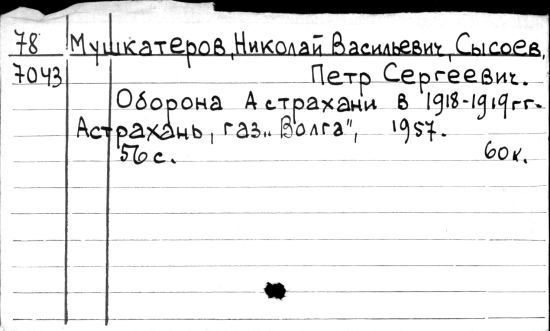 78 Мушкатеров, Николай Васильевич, Сысоев,
7043 Петр Сергеевич.
Оборона Астрахани в 1918-1919 гг.
Астрахань, газ. „Волга", 1957.
56 с. 60 к.